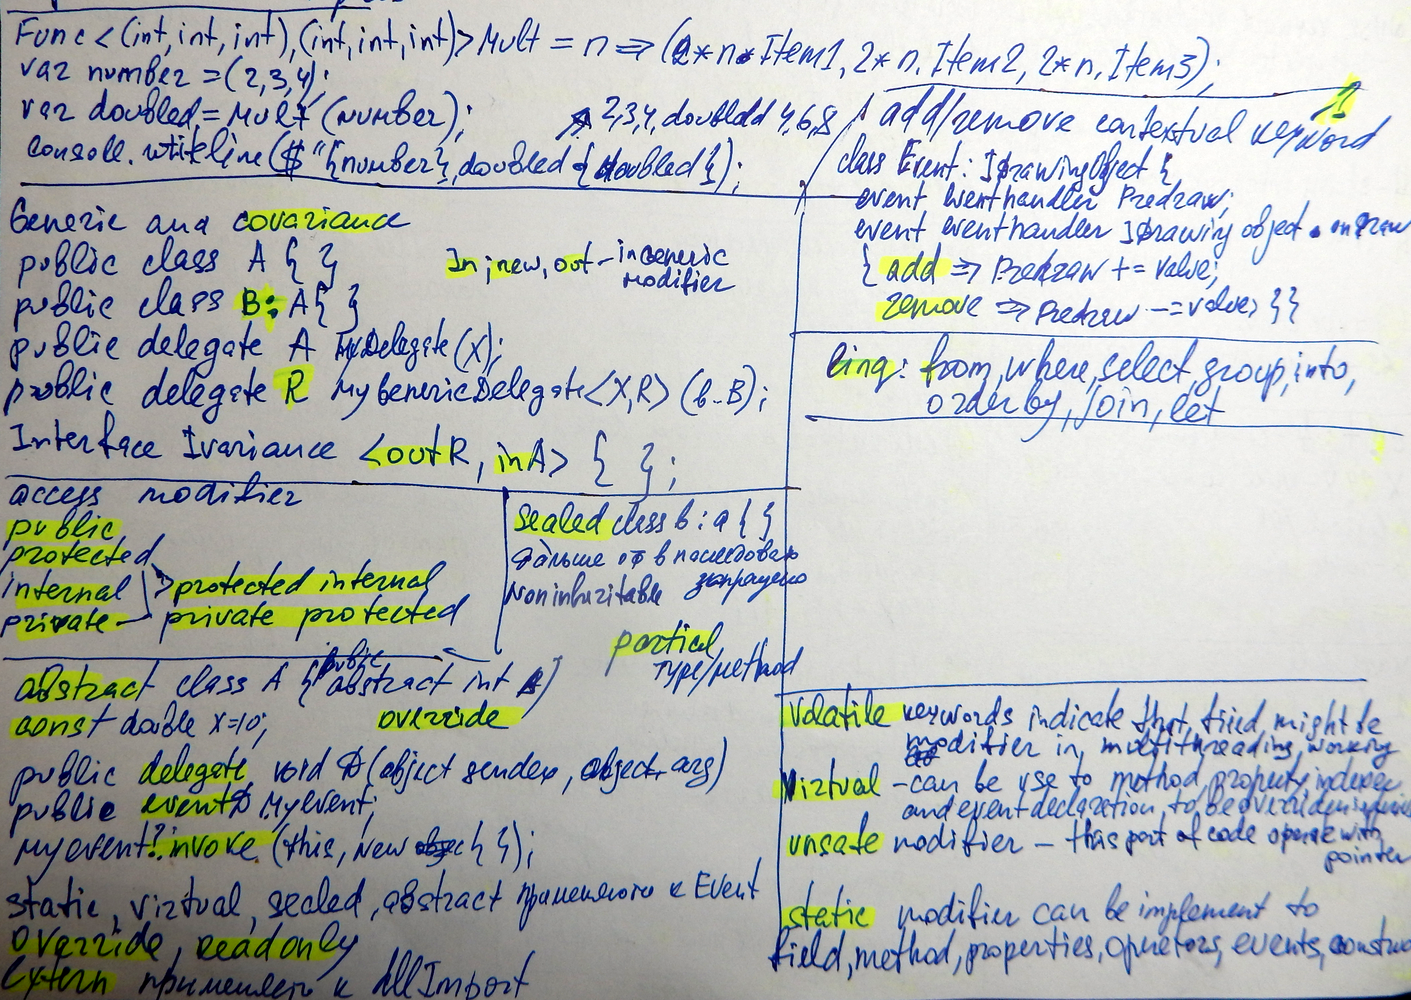 Func<(int,int,int),(int,int,int)> Mult = n => (2*n.Item1, 2*n.Item2, 2*n.Item3);
var number = (2,3,4);
var doubled = Mult (number);
2,3,4, doubledd 4,6,8
consoll.writeline($"{number}, doubled {doubled});
Generic and covariance
public class A { }
In, new, out - in generic
modifier
public class B: A{ }
public delegate A MyDelegate(X);
public delegate R MyGenericDelegate<X,R> (b-B);
Interface Ivariance <out R, in A> { };
access modifier
public
protected
internal > protected internal
private - private protected
sealed class b : a { }
дальше от b наследовать
запрещено
Noninheritable
partial
type/method
public
abstract class A { abstract int A}
const double x=10;
override
public delegate void D(object sender, object, arg)
public event D Myevent;
myevent?.invoke (this, new { });
static, virtual, sealed, abstract применяют к Event
override, readonly
extern применяют к dllImport
1
add/remove contextual keyword
class Event: IDrawingObject {
event eventhandler Predraw;
event eventhandler IDrawing object.onDraw
{ add => Predraw += value;
remove => Predraw -= value; }}
linq: from, where, select, group, into,
orderby, join, let
Volatile keywords indicate that, field might be
modifier in multithreading, working
Virtual - can be use to method, property, indexer
and event declaration, to be overriden
unsafe modifier - this part of code operate with
pointer
static modifier can be implement to
field, method, properties, operators, events, constru